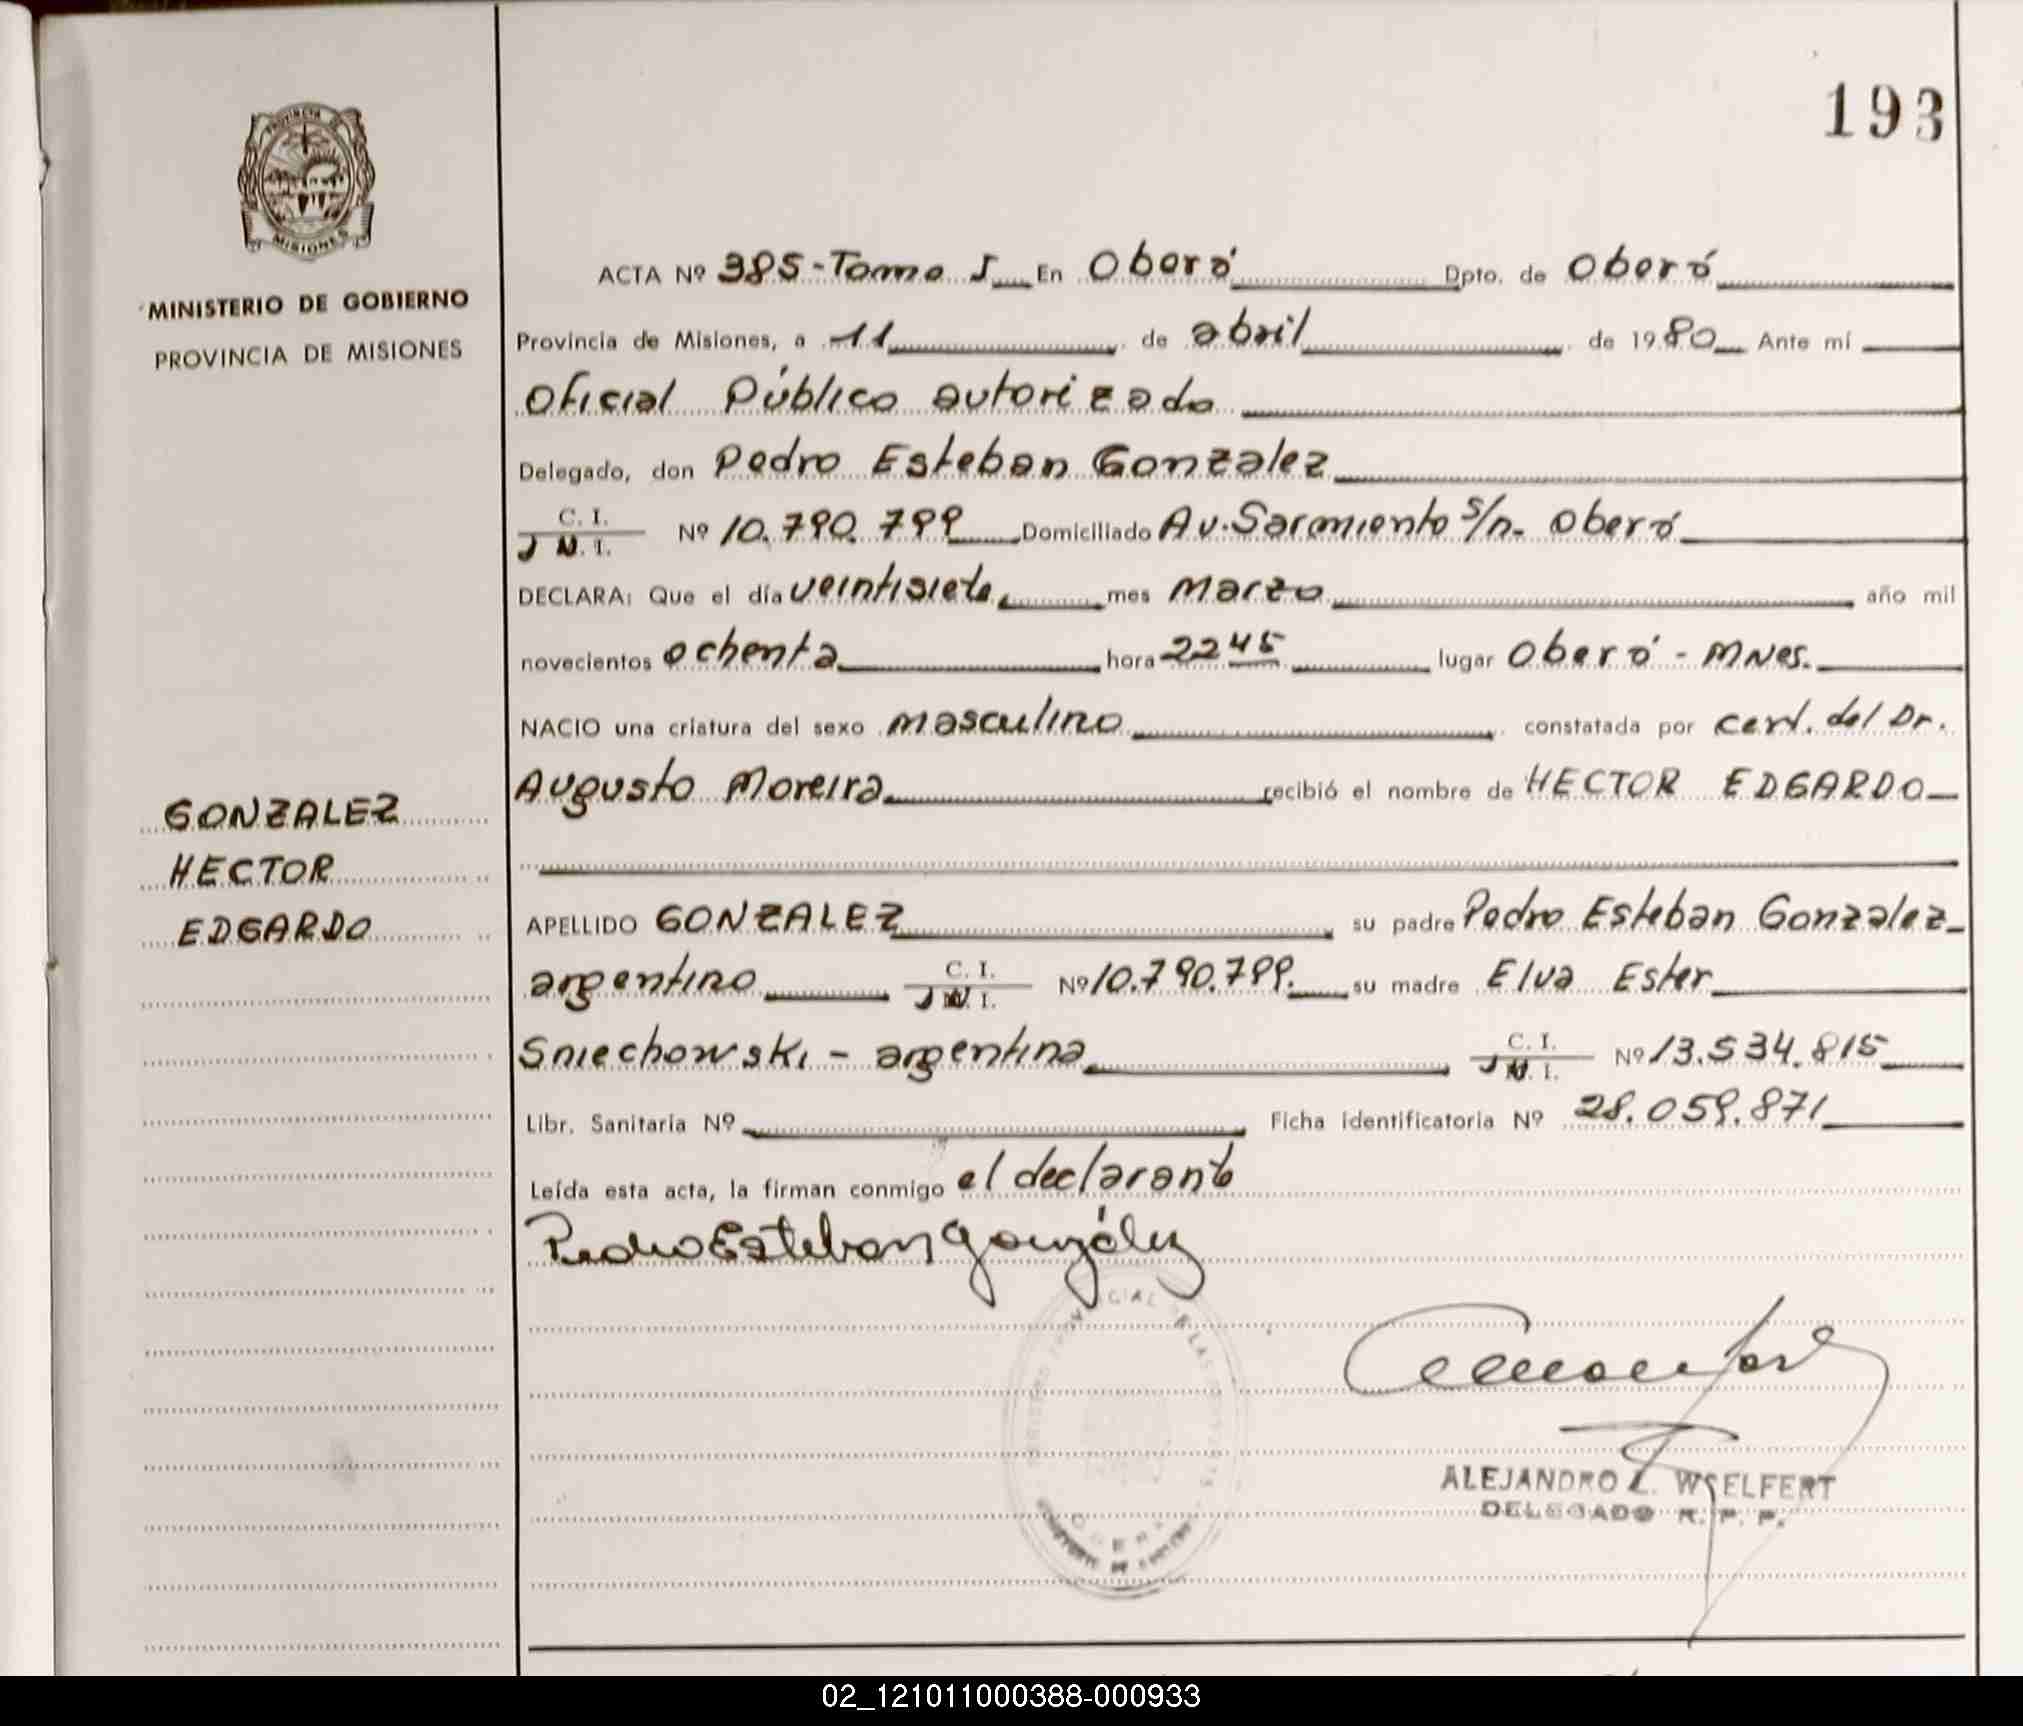 193
PROVINCIA DE
MISIONES
MINISTERIO DE GOBIERNO
PROVINCIA DE MISIONES
ACTA Nº 385-Tomo I En Oberá Dpto. de Oberá
Provincia de Misiones, a 11 de abril de 1980 Ante mí
Oficial Público autorizado
Delegado, don Pedro Esteban Gonzalez
C. I.
Nº 10.790.799 Domiciliado Av. Sarmiento s/n- Oberá
DECLARA: Que el día veintisiete mes Marzo año mil
novecientos ochenta hora 22 45 lugar Oberá - MNes.
NACIO una criatura del sexo masculino constatada por cert. del Dr.
Augusto Moreira recibió el nombre de HECTOR EDGARDO
GONZALEZ
HECTOR
EDGARDO
APELLIDO GONZALEZ su padre Pedro Esteban Gonzalez
argentino C. I. Nº 10.790.799. su madre Elva Ester
Sniechowski - argentina C. I. Nº 13.534.815
Libr. Sanitaria Nº Ficha identificatoria Nº 28.059.871
Leída esta acta, la firman conmigo el declarante
Pedro Esteban González
ALEJANDRO L. WSELFERT
DELEGADO R. P. P.
02_121011000388-000933